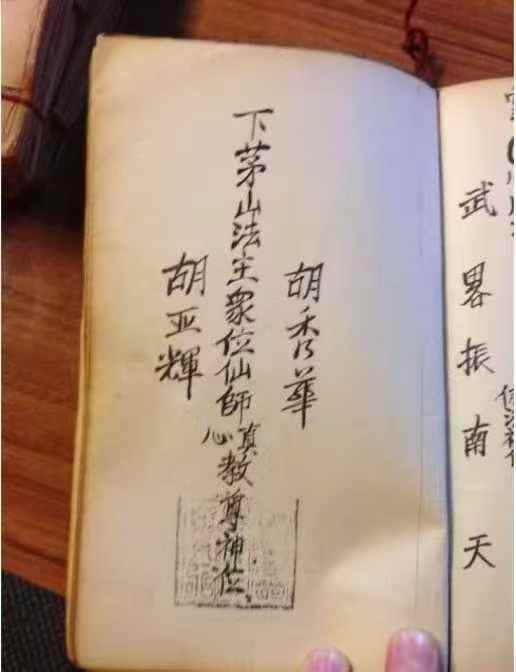 武畧振南天
胡秀華
下茅山法主眾位仙師真心教尊神位
胡亚輝